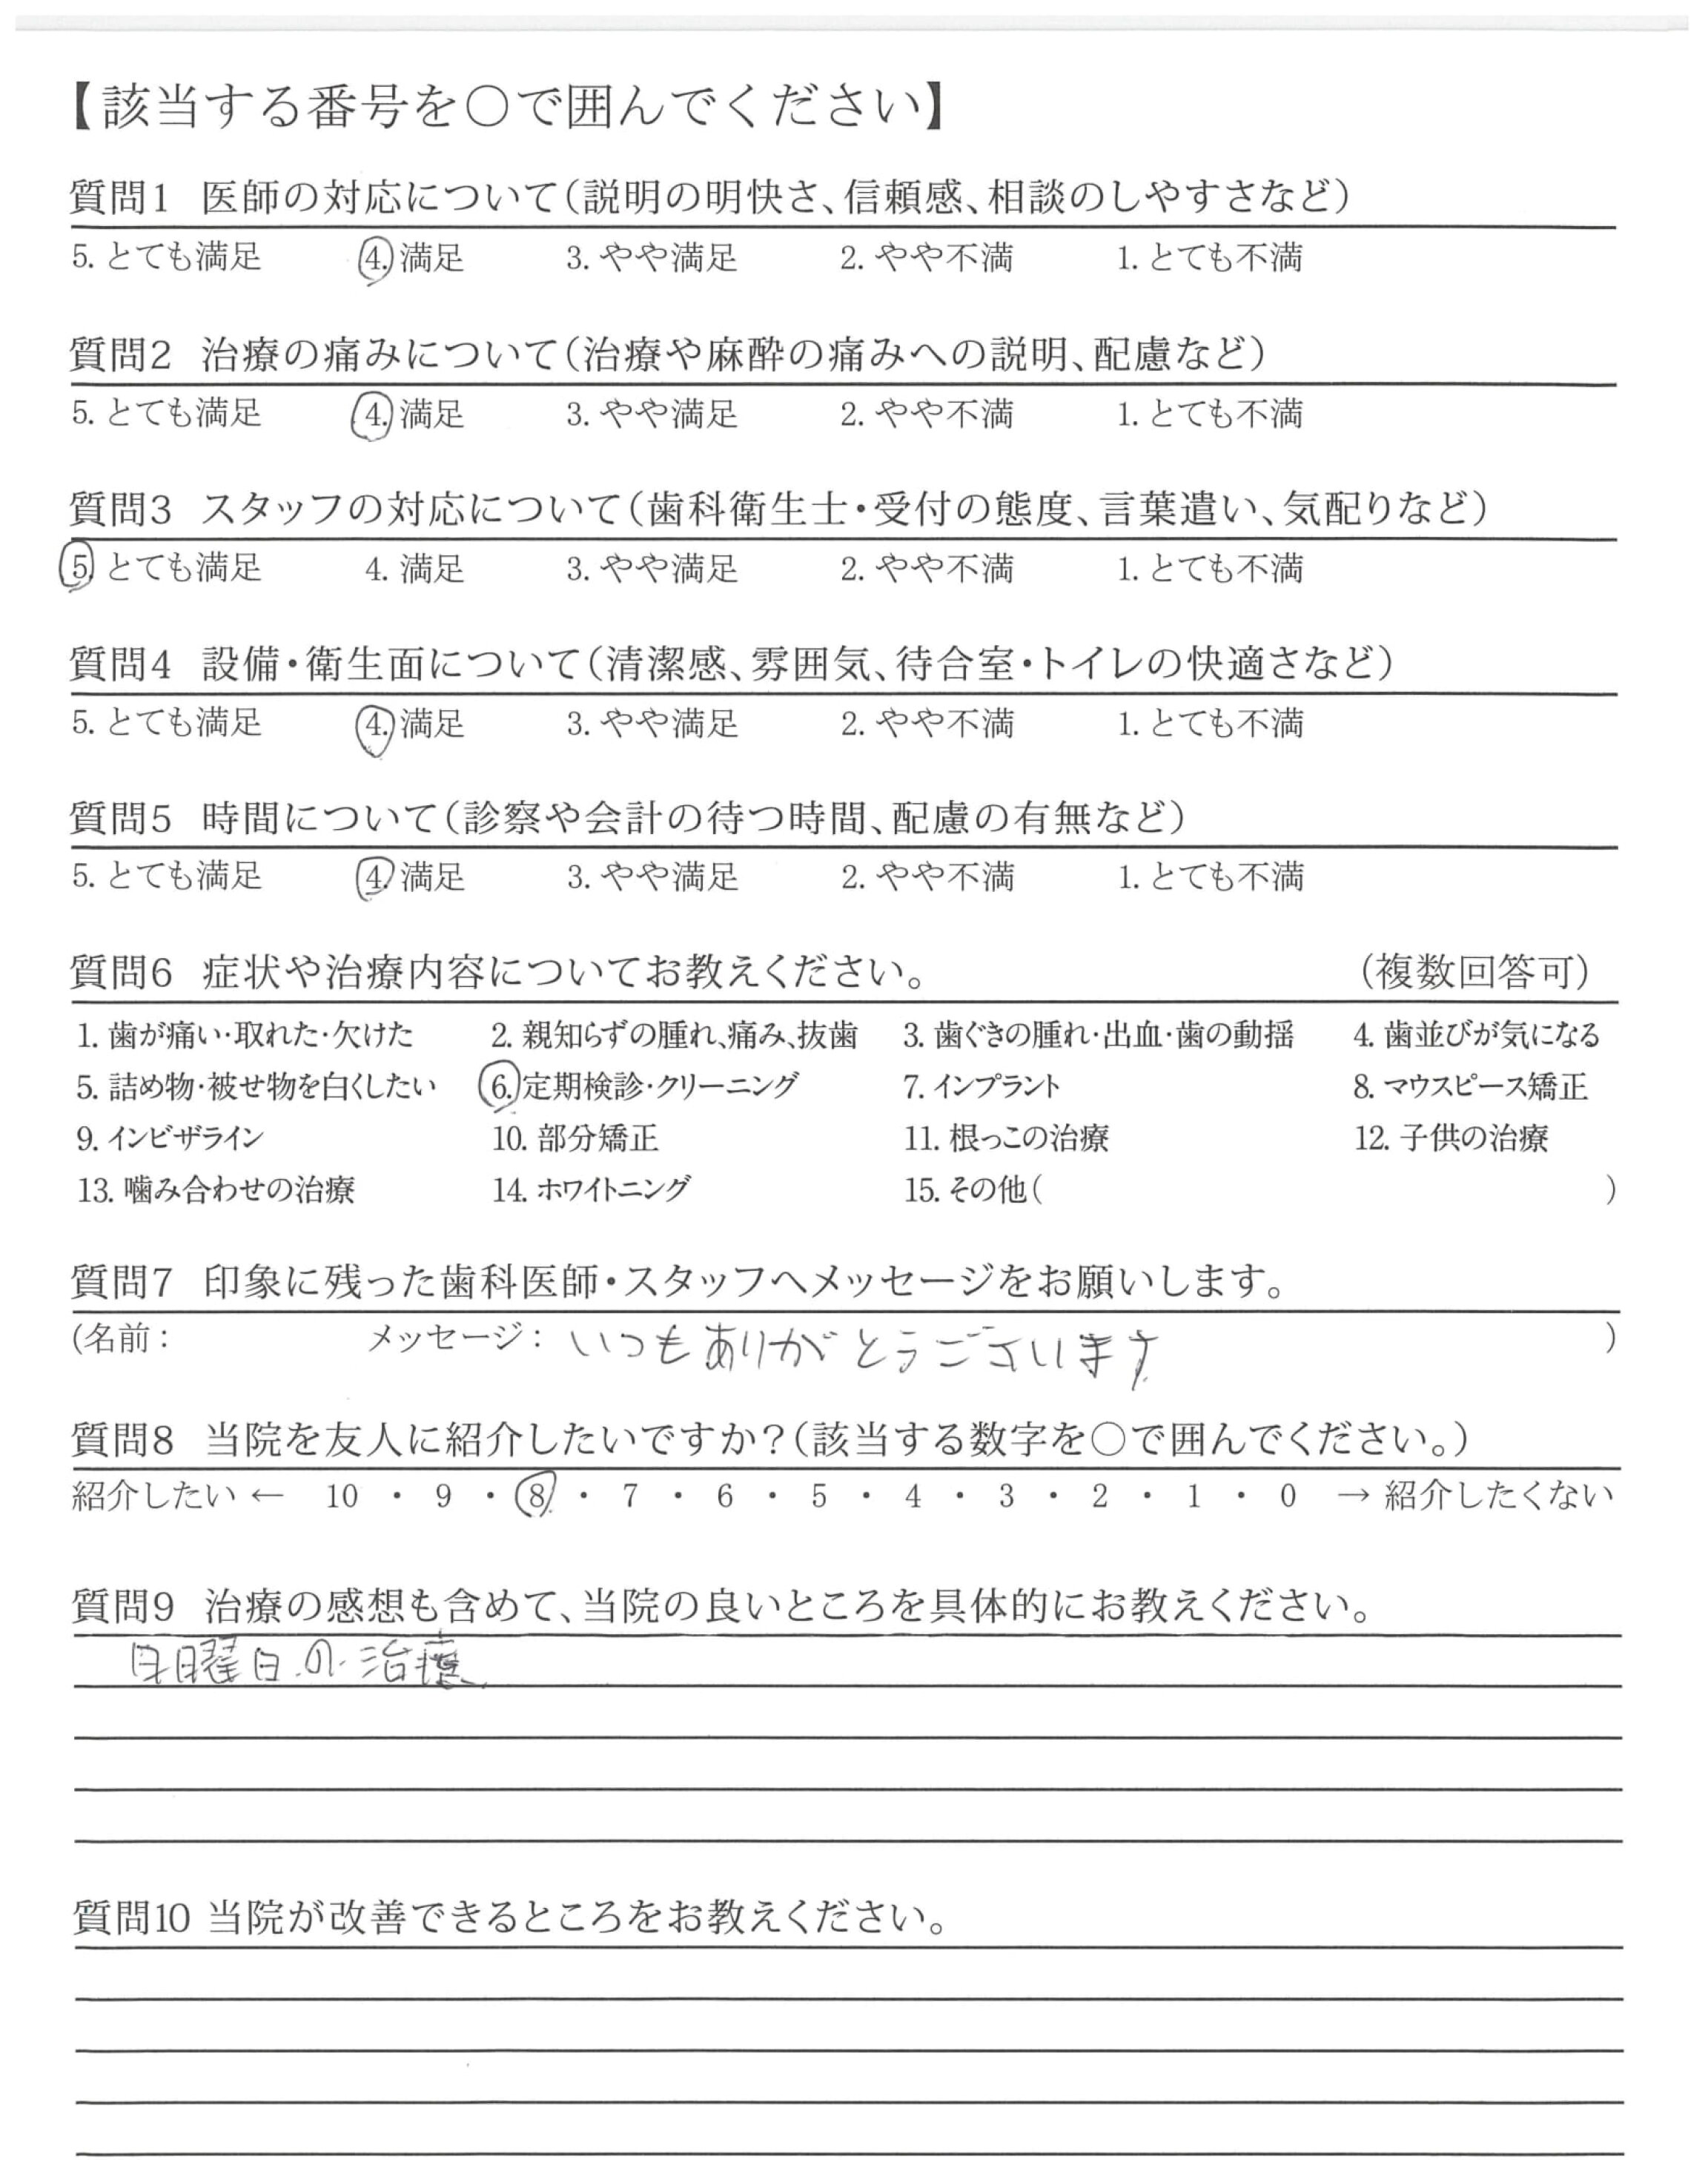 【該当する番号を○で囲んでください】
質問1 医師の対応について(説明の明快さ、信頼感、相談のしやすさなど)
5. とても満足 4. 満足 3. やや満足 2. やや不満 1. とても不満
質問2 治療の痛みについて(治療や麻酔の痛みへの説明、配慮など)
5. とても満足 4. 満足 3. やや満足 2. やや不満 1. とても不満
質問3 スタッフの対応について(歯科衛生士・受付の態度、言葉遣い、気配りなど)
5. とても満足 4. 満足 3. やや満足 2. やや不満 1. とても不満
質問4 設備・衛生面について(清潔感、雰囲気、待合室・トイレの快適さなど)
5. とても満足 4. 満足 3. やや満足 2. やや不満 1. とても不満
質問5 時間について(診察や会計の待つ時間、配慮の有無など)
5. とても満足 4. 満足 3. やや満足 2. やや不満 1. とても不満
質問6 症状や治療内容についてお教えください。 (複数回答可)
1. 歯が痛い・取れた・欠けた 2. 親知らずの腫れ、痛み、抜歯 3. 歯ぐきの腫れ・出血・歯の動揺 4. 歯並びが気になる
5. 詰め物・被せ物を白くしたい 6. 定期検診・クリーニング 7. インプラント 8. マウスピース矯正
9. インビザライン 10. 部分矯正 11. 根っこの治療 12. 子供の治療
13. 噛み合わせの治療 14. ホワイトニング 15. その他( )
質問7 印象に残った歯科医師・スタッフへメッセージをお願いします。
(名前: メッセージ: いつもありがとうございます )
質問8 当院を友人に紹介したいですか?(該当する数字を○で囲んでください。)
紹介したい ← 10 ・ 9 ・ 8 ・ 7 ・ 6 ・ 5 ・ 4 ・ 3 ・ 2 ・ 1 ・ 0 → 紹介したくない
質問9 治療の感想も含めて、当院の良いところを具体的にお教えください。
曜日の治療
質問10 当院が改善できるところをお教えください。